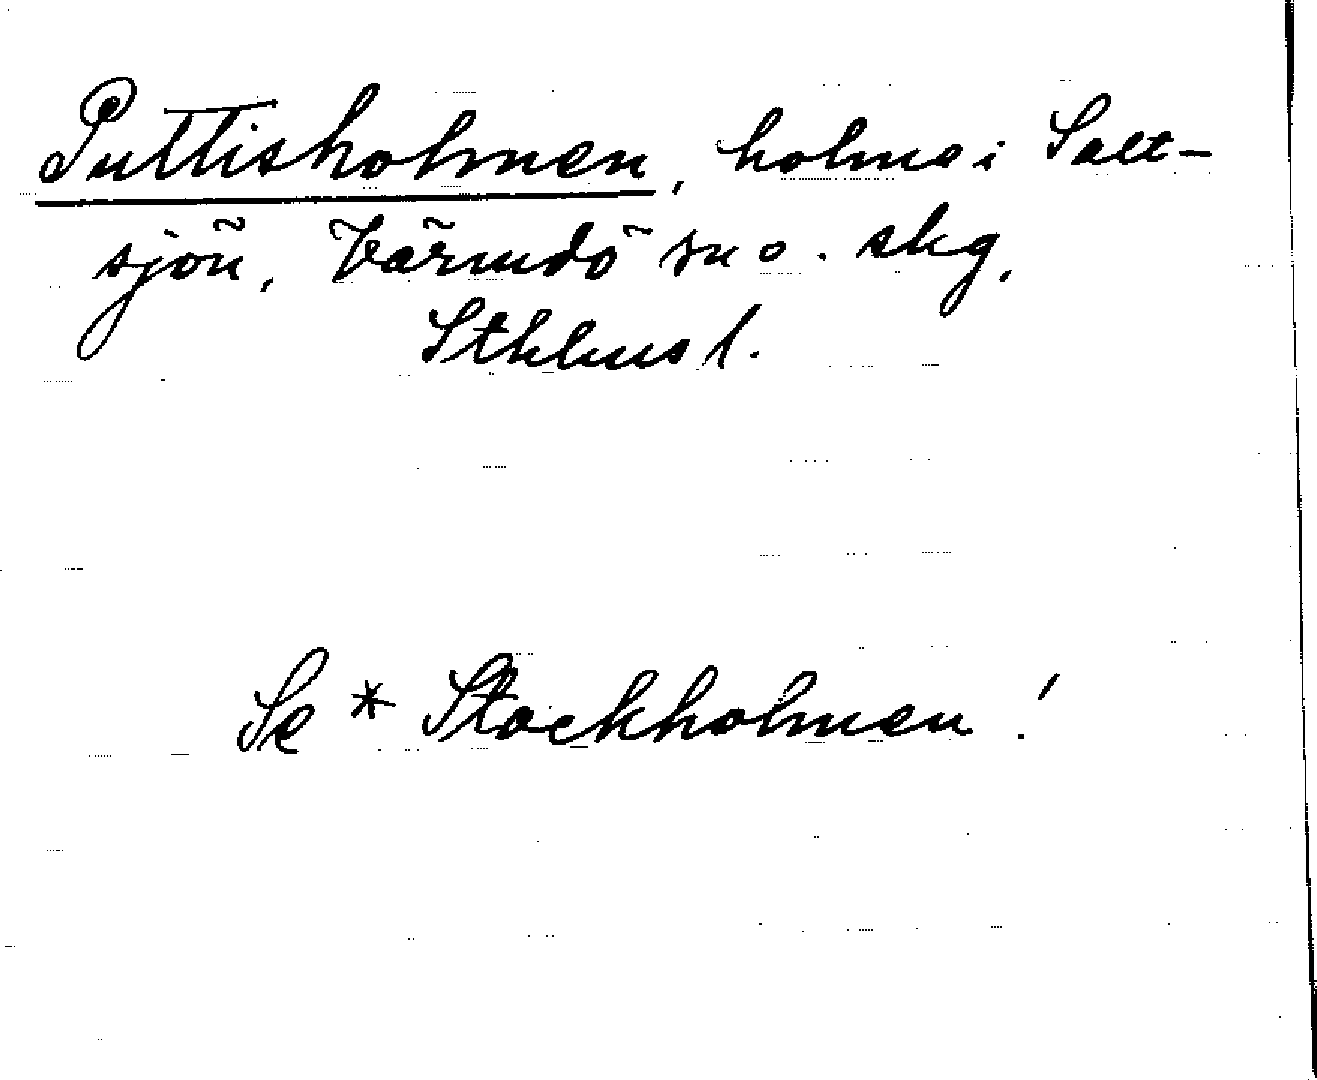 Puttisholmen, holme i Salt-
sjön, Värmdö sn o. skg,
Sthlms l.
Se * Stockholmen!